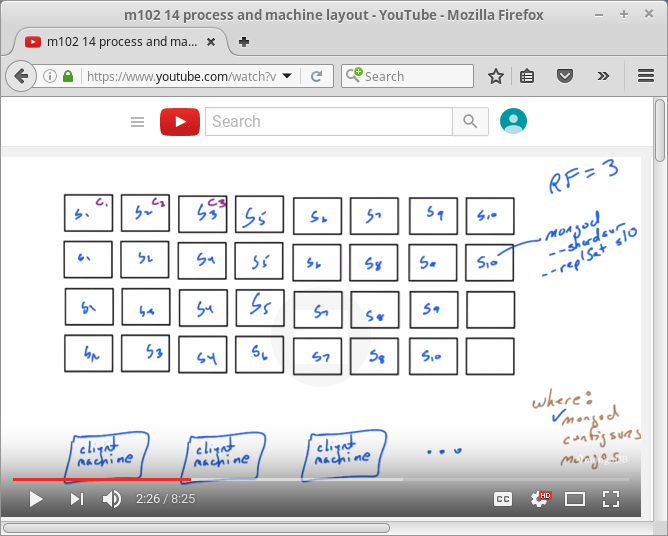 m102 14 process and machine layout - YouTube - Mozilla Firefox
m102 14 process and ma...
https://www.youtube.com/watch?v
Search
Search
RF = 3
C1 C2 C3
S1 S2 S3 S5 S6 S7 S9 S10
S1 S2 S4 S5 S6 S8 S9 S10
mongod
--shardsvr
--replSet s10
S1 S3 S4 S5 S7 S8 S9
S2 S3 S4 S6 S7 S8 S10
where:
mongod
configsvrs
mongos
client machine
client machine
client machine
...
2:26 / 8:25
CC
HD